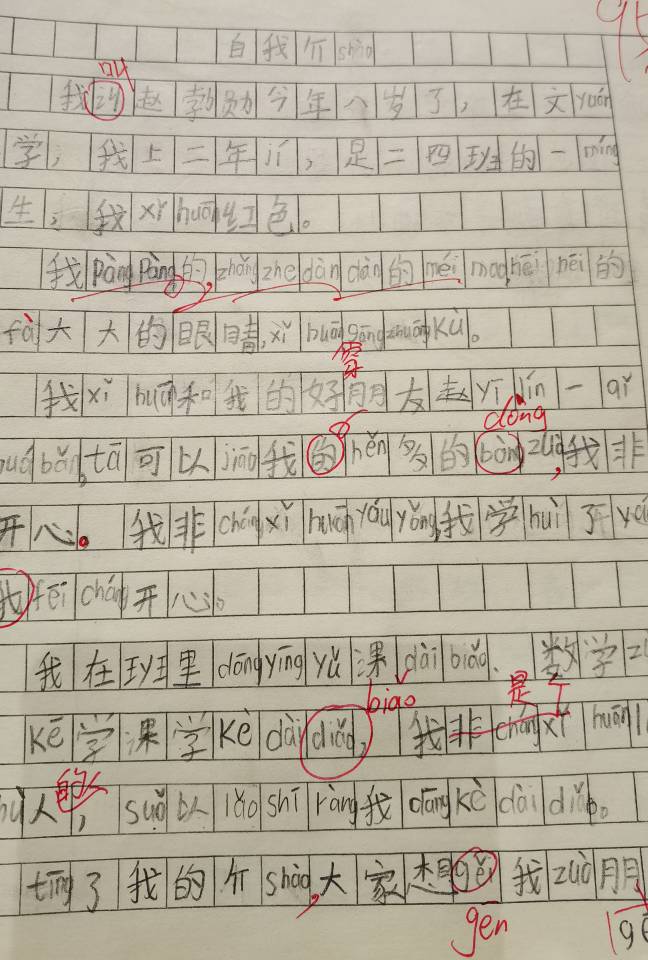 自我介shào
叫
我赵勃勋今年八岁了，在文yuán
学，我上二年jí，是二四班的一míng
生，我xǐ huān红色。
我pàng pàng的，zhǎng zhe dàn dàn的méi mao，hēi hēi的
fà大大的眼睛，xǐ huān gōng zhuāng kù。
我xǐ huān和我的好朋友赵yī lín一qǐ
huá bǎn，tā可以jiāo我的hěn多的dòng zuò，我非
dòng
开心。我非cháng xǐ huān yóu yǒng，我学huì了yóu
我fēi cháng开心。
我在班里dāng yīng yǔ课dài biǎo、数学
biao
kē学课学kè dài diǎo，我非cháng xǐ huān
是
人，suǒ以lǎo shī ràng我dāng kè dài diǎo。
的
tīng了我的介shào，大家想gěi我zuò朋
gēn